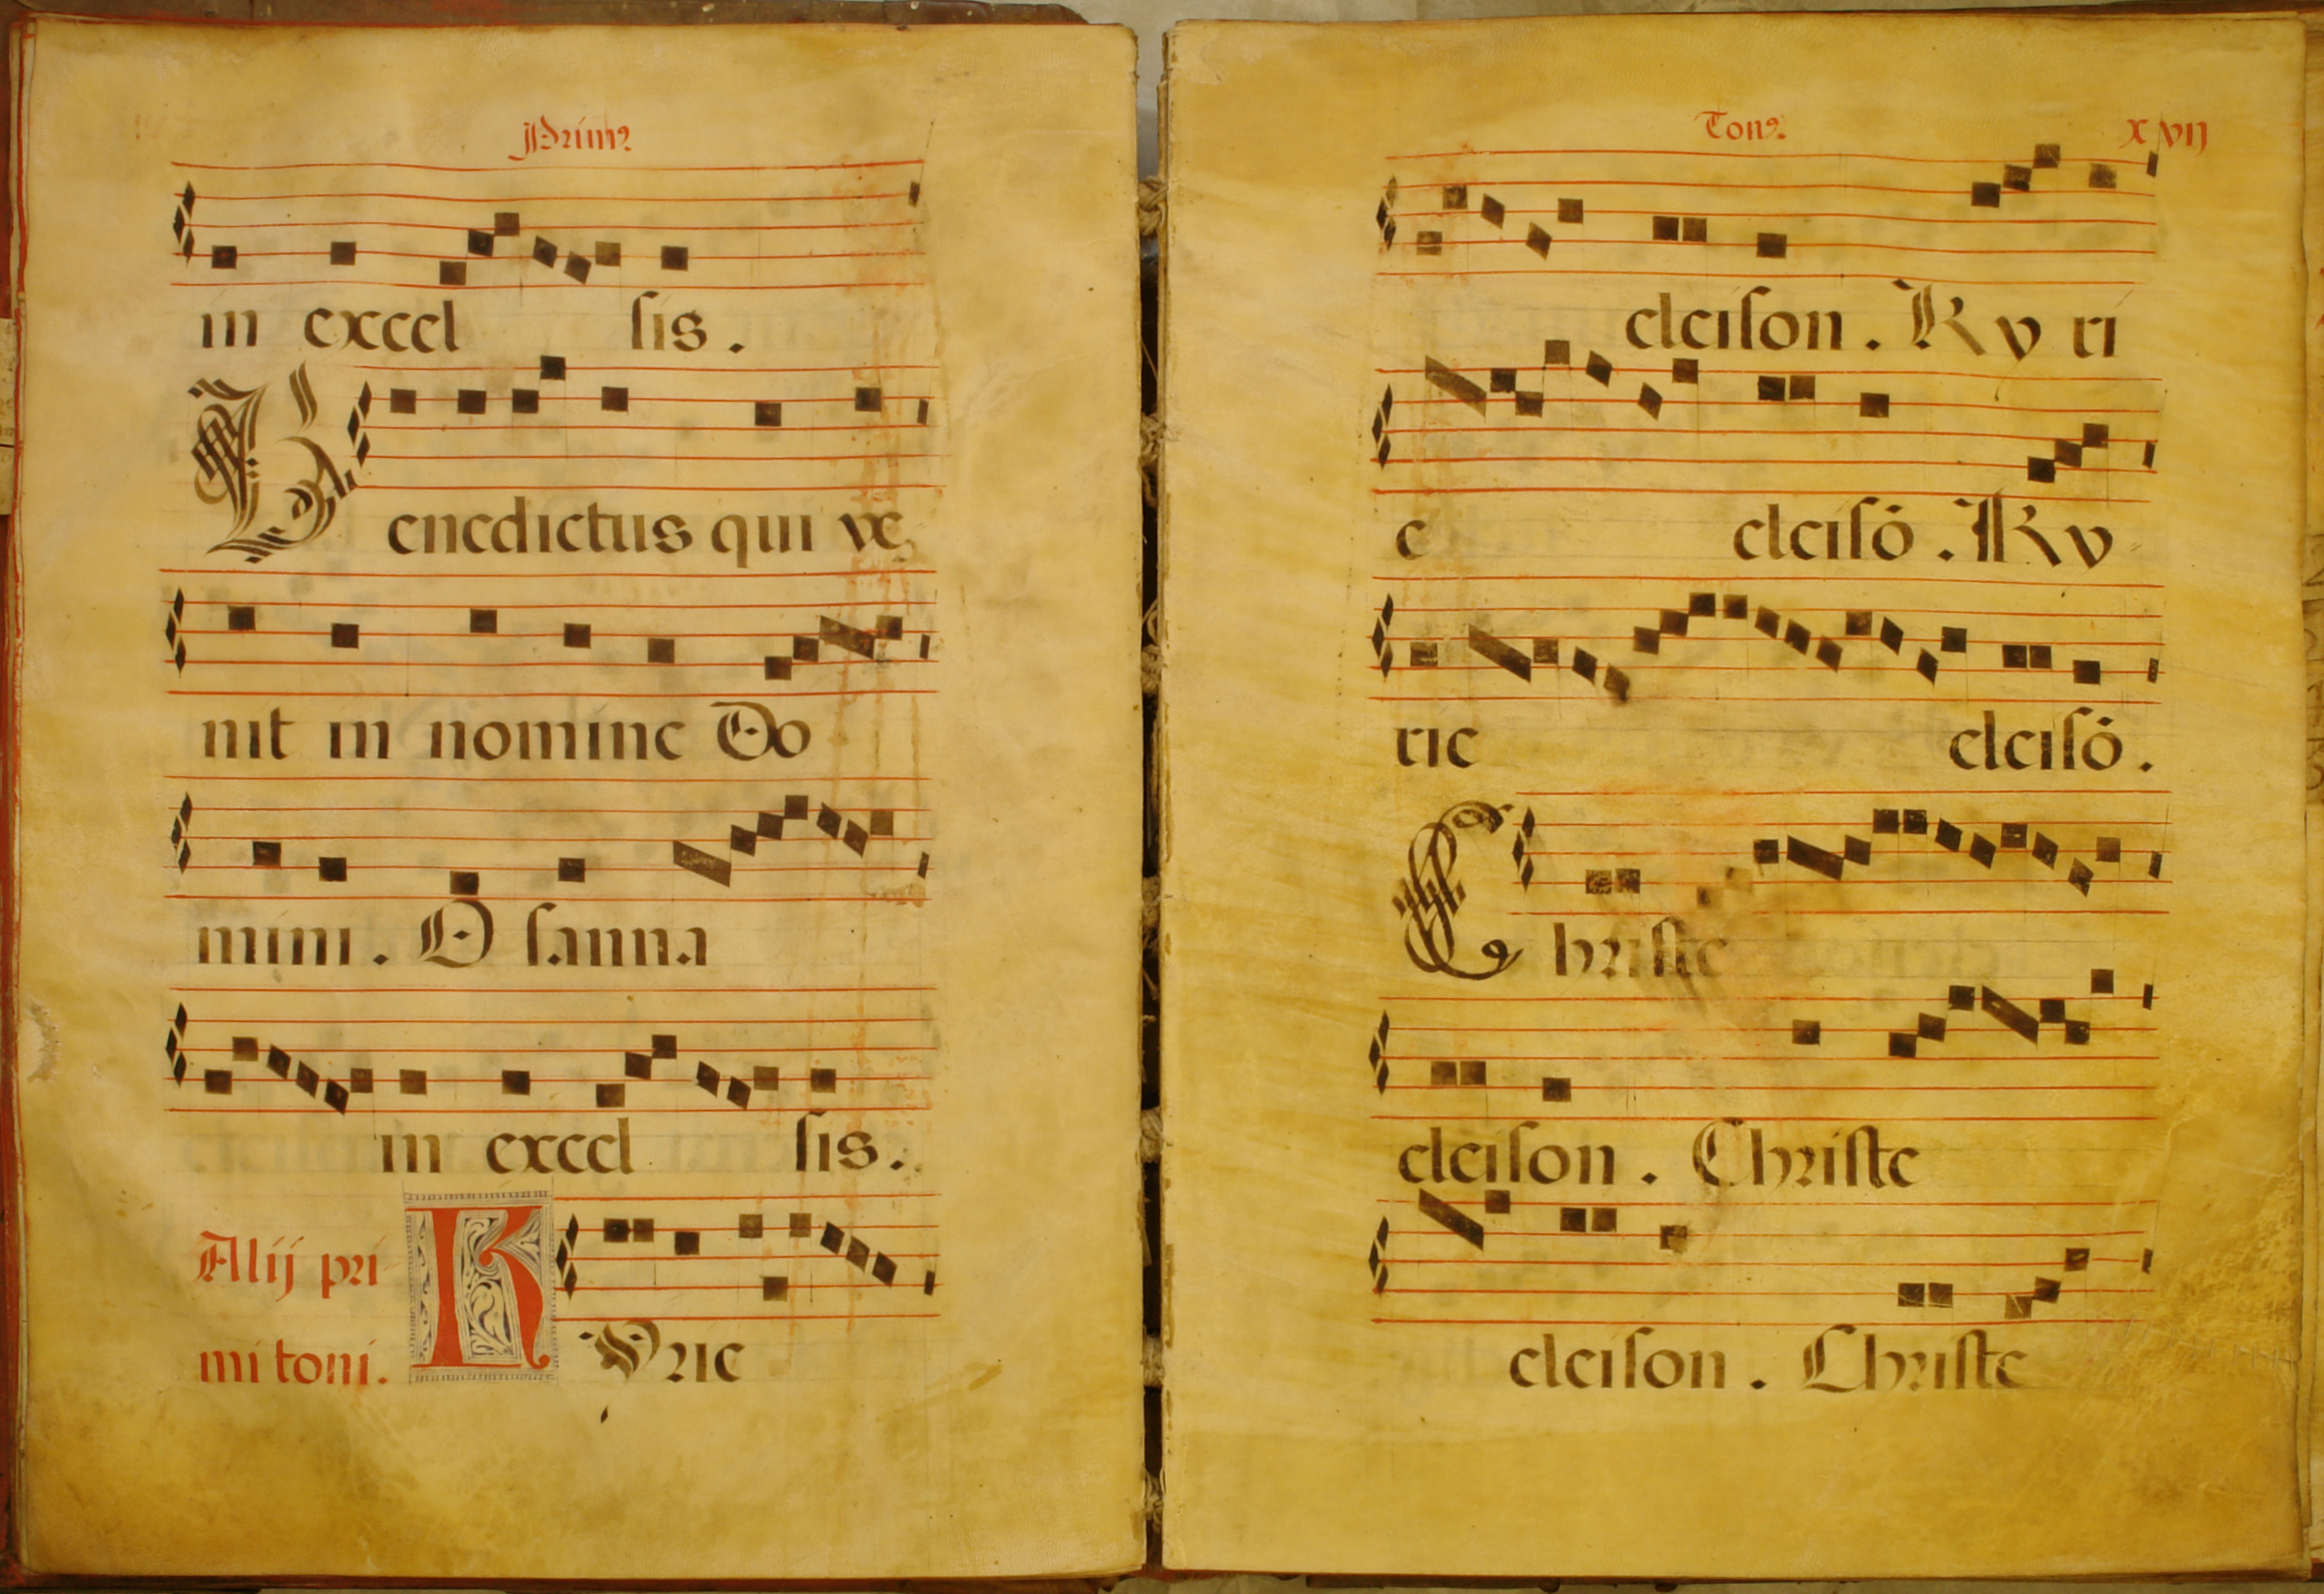 Primꝰ
in excel sis .
Benedictus qui ve
nit in nomine Do
mini . O sanna
in excel sis .
Alij pri
mi toni .
Kyrie
Tonꝰ
xvij
eleison . Ky ri
e eleisō . Ky
rie eleisō .
Christe
eleison . Christe
eleison . Christe